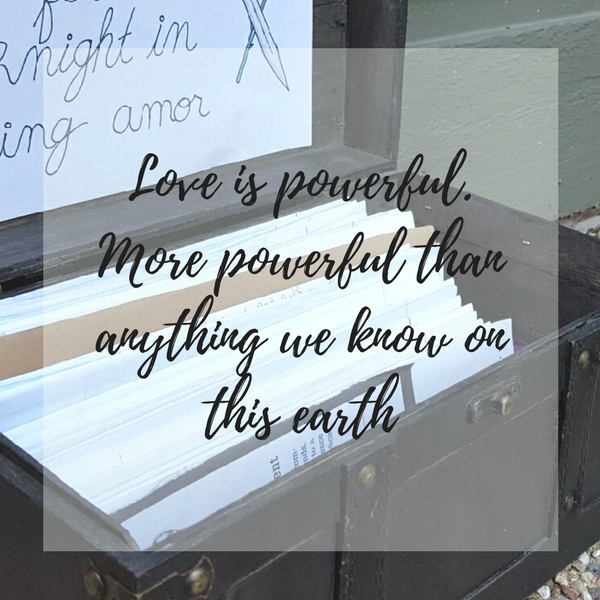 knight in
ing amor
Love is powerful.
More powerful than
anything we know on
this earth
ent